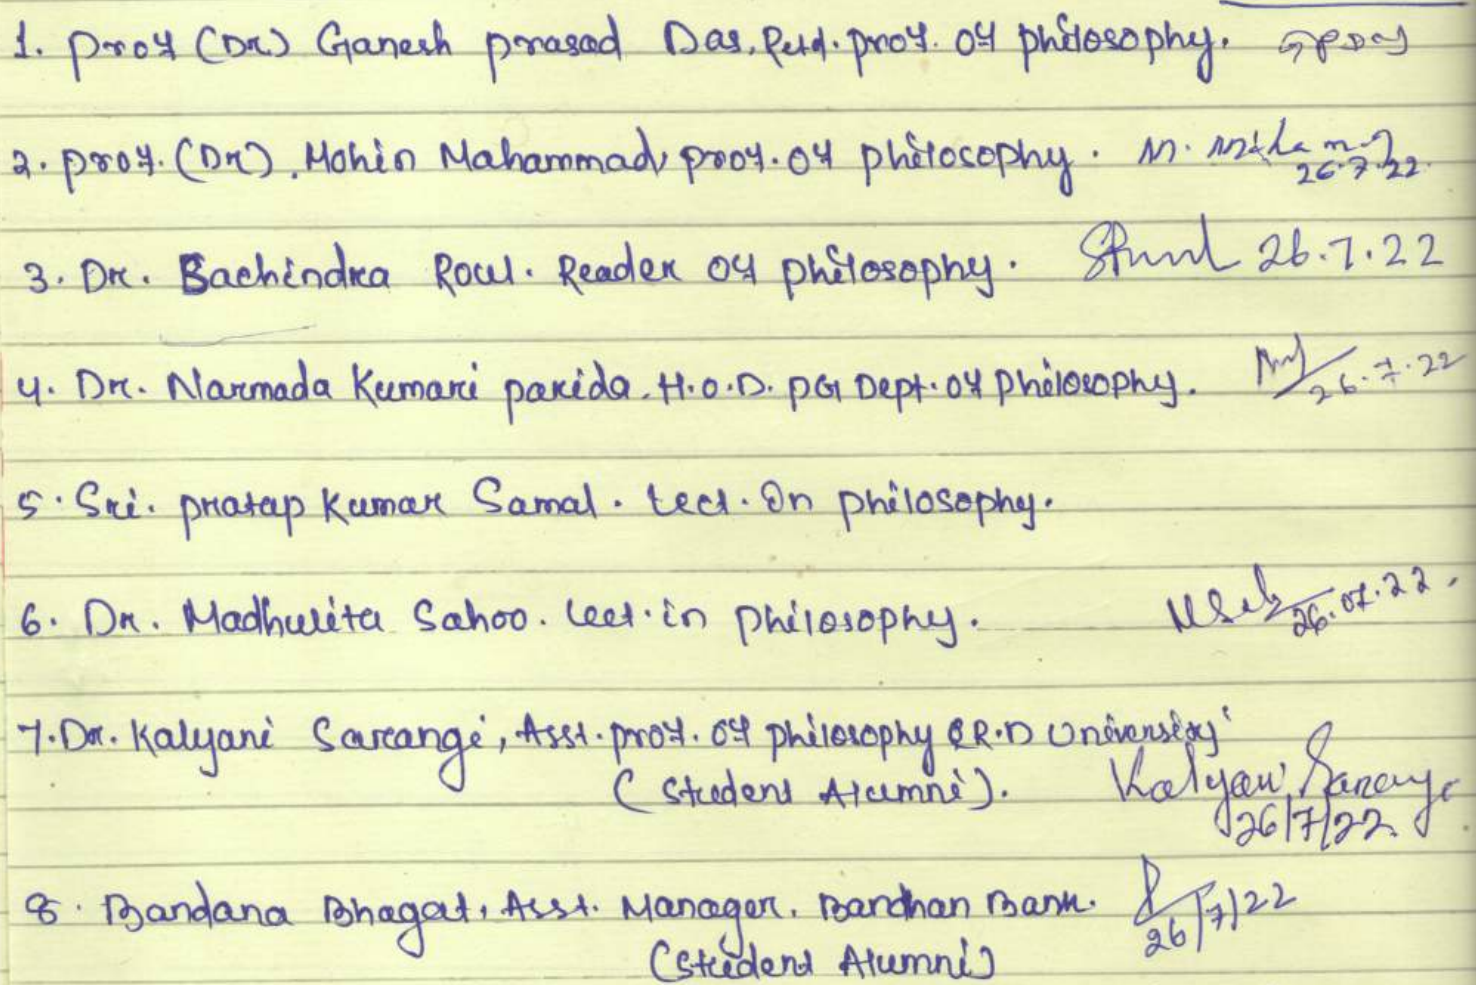 1. Prof (Dr) Ganesh prasad Das, Retd. prof. of philosophy. GPDas
2. prof. (Dr). Mohin Mahammad, prof. of philosophy. 26.7.22
3. Dr. Sachindra Roul. Reader of philosophy. 26.7.22
4. Dr. Narmada Kumari parida. H.O.D. PG Dept. of philosophy. 26.7.22
5. Sri. pratap Kumar Samal. Lect. In philosophy.
6. Dr. Madhulita Sahoo. Lect. in philosophy. 26.07.22.
7. Dr. Kalyani Sarangi, Asst. prof. of philosophy @R.D University
(Student Alumni). Kalyani Sarangi
26/7/22
8. Bandana Bhagat, Asst. Manager. Bandhan Bank. 26/7/22
(Student Alumni)